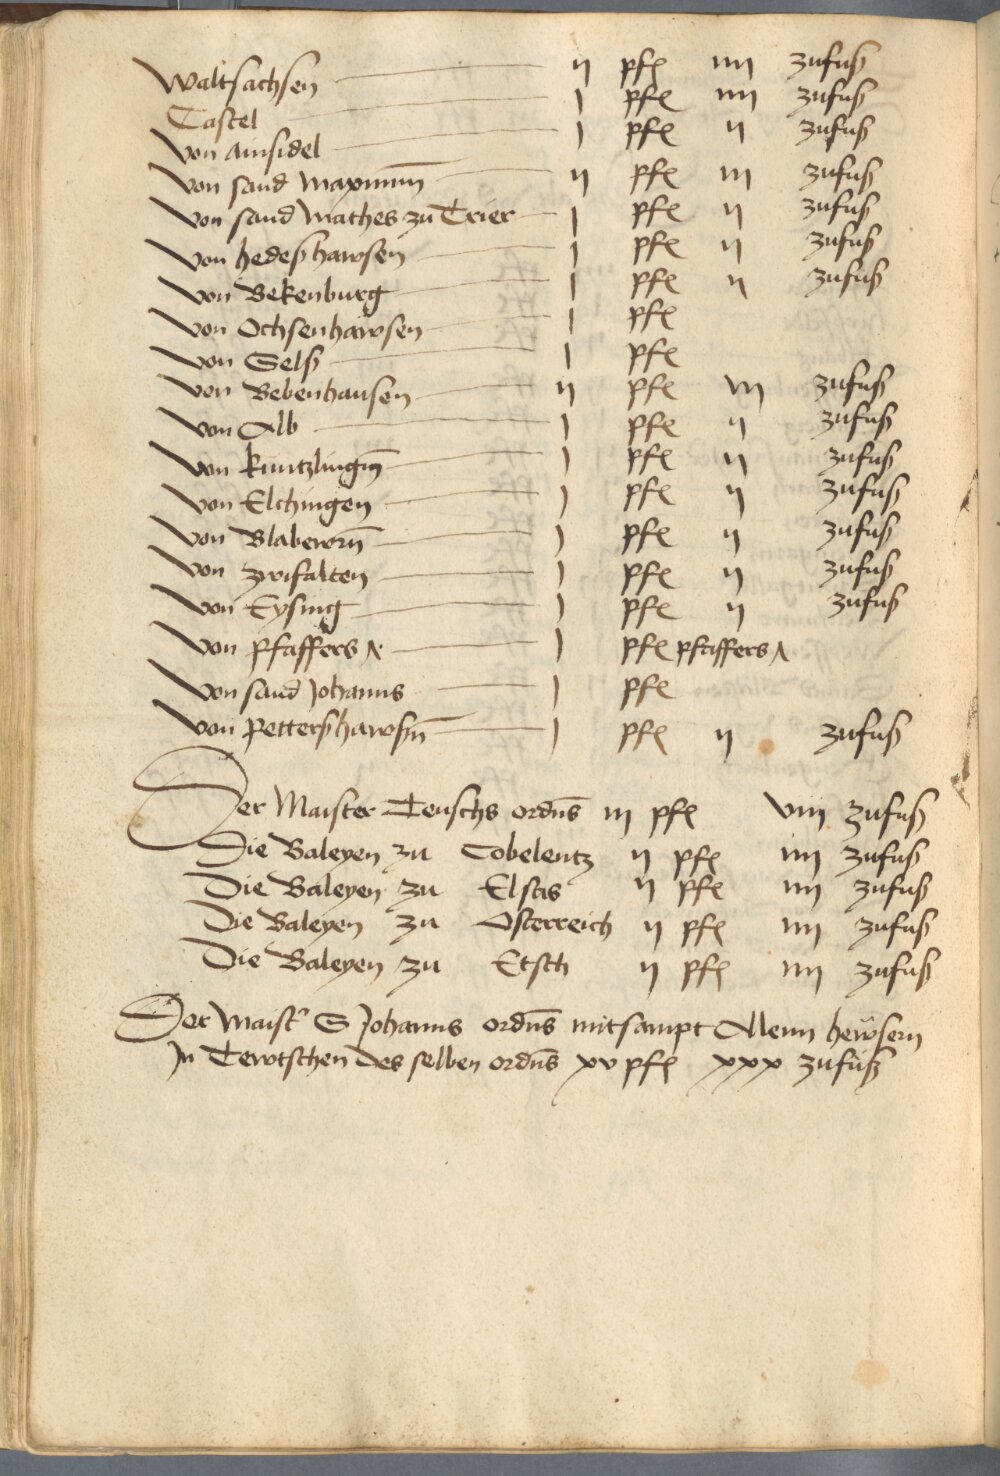 Waltsachsen ij pfe iiij zufuß
Castel j pfe iiij zufuß
Von ainsidel j pfe ij zufuß
Von sand Maximin̄ ij pfe iij zufuß
Von sand Mathes zu Trier j pfe ij zufuß
Von hedeßhawsen j pfe ij zufuß
Von Bekenburg j pfe ij zufuß
Von Ochsenhawsen j pfe
Von Selß j pfe
Von Bebenhausen ij pfe iij zufuß
Von Alb j pfe ij zufuß
Von kuntzlingn̄ j pfe ij zufuß
Von Elchingen j pfe ij zufuß
Von Blabewrn̄ j pfe ij zufuß
Von zwifalten j pfe ij zufuß
Von Eysing j pfe ij zufuß
Von Pfaffers j pfe pfaffers
Von sand Johanns j pfe
Von Petterßhawsn̄ j pfe ij zufuß
Der Maister Teuschs ordn̄s iij pfe viij zufuß
Die Baleyen zu Cobelentz ij pfe iiij zufuß
Die Baleyen zu Elsas ij pfe iiij zufuß
Die Baleyen zu Osterreich ij pfe iiij zufuß
Die Baleyen zu Etsch ij pfe iiij zufuß
Der Maist' S Johanns ordn̄s mitsampt Allenn hewsern
Jn Tewtschen des selben ordn̄s xv pfe xxx zufuß